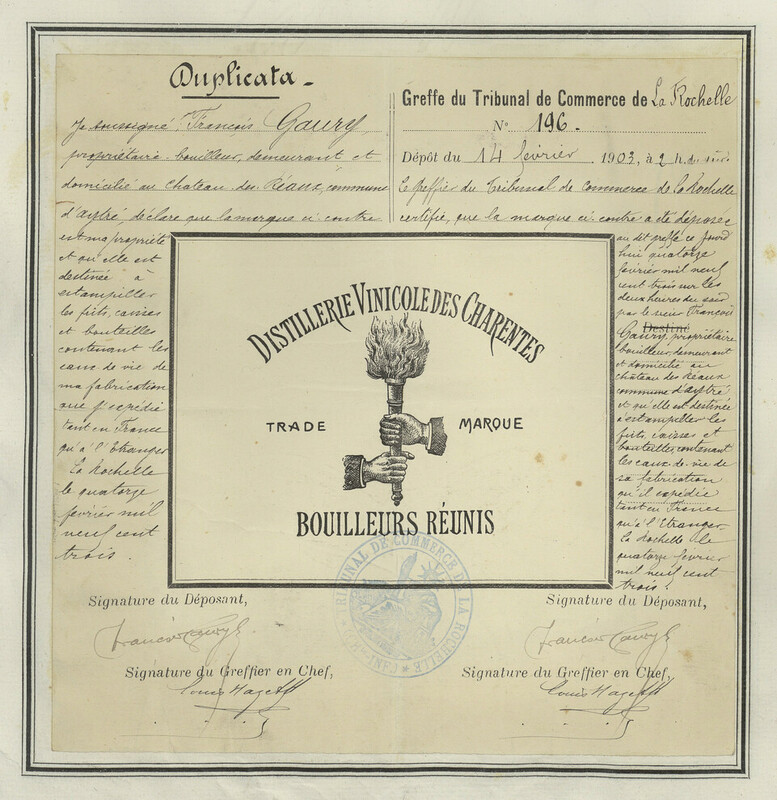 Duplicata -
Je soussigné, François Gaury,
propriétaire bouilleur, demeurant et
domicilié au chateau des Réaux, commune
d'aytré, déclare que la marque ci contre
est ma propriété
et qu'elle est
destinée à
estampiller
les fûts, caisses
et bouteilles
contenant les
eaux de vie de
ma fabrication
que j'expédie
tant en France
qu'à l'Etranger
La Rochelle
le quatorze
février mil
neuf cent
trois.
Greffe du Tribunal de Commerce de La Rochelle
N° 196.
Dépôt du 14 février 1903, à 2 h. du soir
Le greffier du Tribunal de Commerce de La Rochelle
certifie, que la marque ci contre a été déposée
au dit greffe ce jourd
hui quatorze
février mil neuf
cent trois sur les
deux heures du soir
par le sieur François
Destiné
Gaury, propriétaire
bouilleur, demeurant
et domicilié au
château des Réaux
commune d'aytré
et qu'elle est destinée
à estampiller les
fûts, caisses et
bouteilles, contenant
les eaux de vie de
sa fabrication
qu'il expédie
tant en France
qu'à l'Etranger
La Rochelle le
quatorze février
mil neuf cent
trois.
DISTILLERIE VINICOLE DES CHARENTES
TRADE MARQUE
BOUILLEURS RÉUNIS
TRIBUNAL DE COMMERCE DE LA ROCHELLE
Signature du Déposant,
François Gaury
Signature du Greffier en Chef,
Louis
Signature du Déposant,
François Gaury
Signature du Greffier en Chef,
Louis